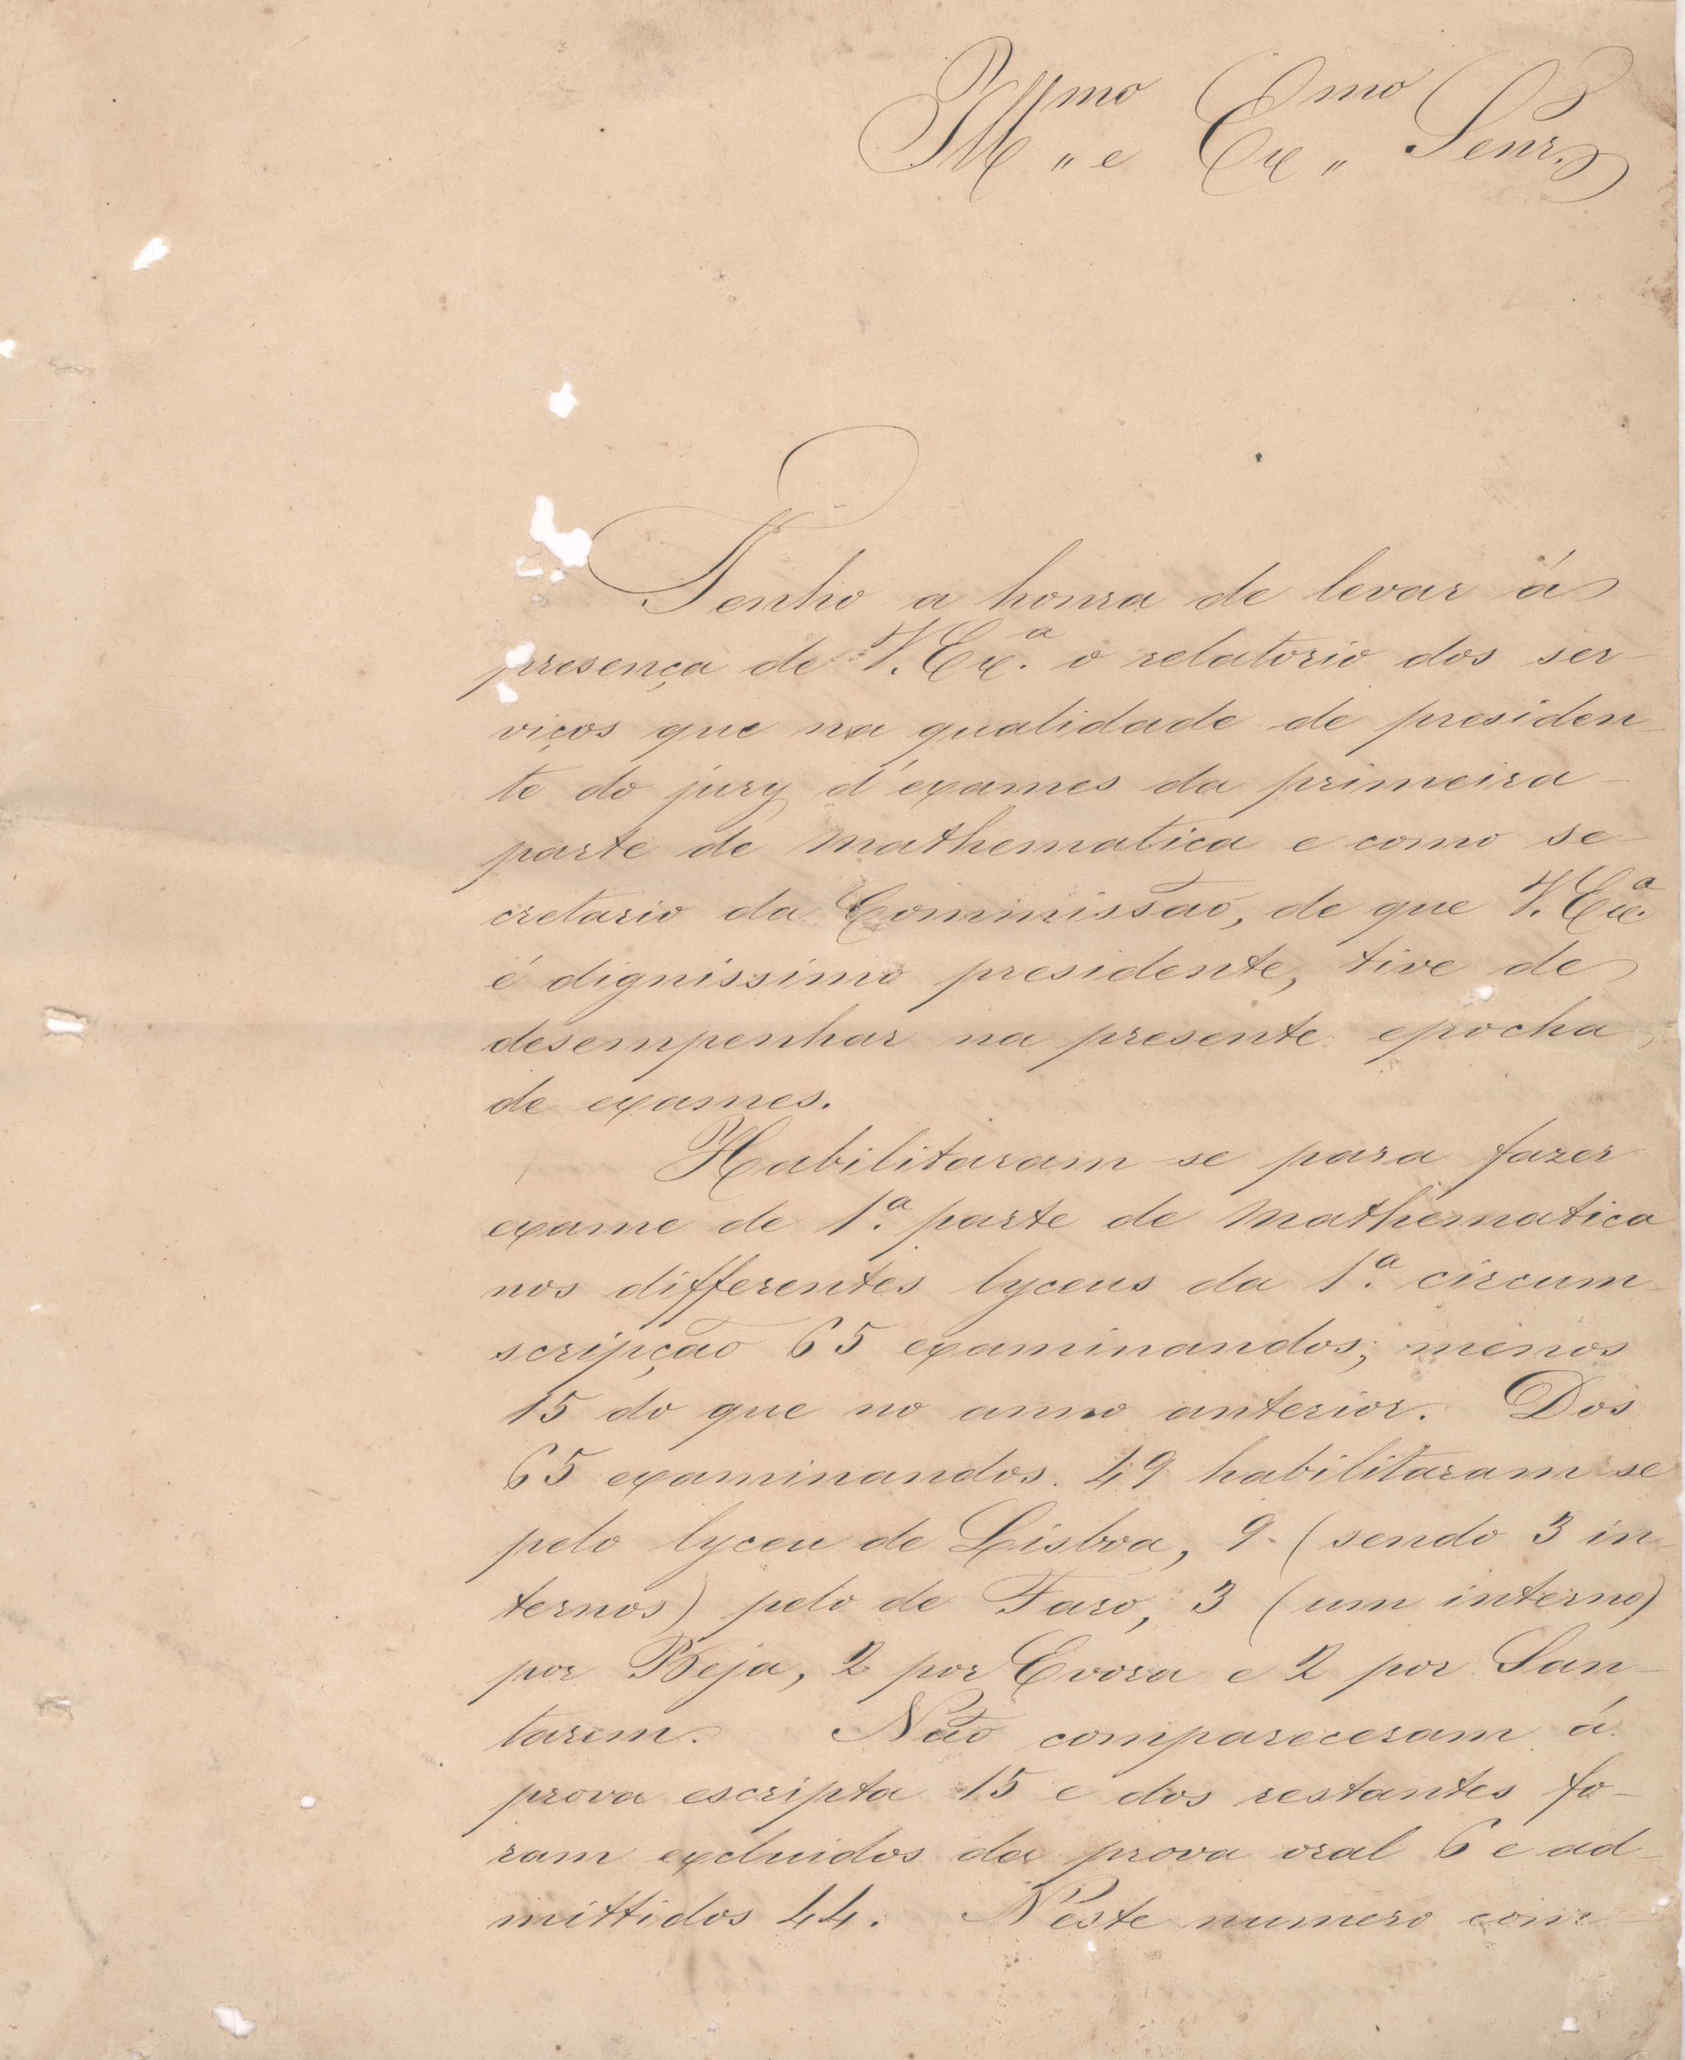 Illmo e Exmo Senr.
Tenho a honra de levar á
presença de V. Exª. o relatorio dos ser-
viços que na qualidade de presiden-
te do jury d'exames da primeira
parte de mathematica e como se-
cretario da Commissão, de que V. Exª.
é dignissimo presidente, tive de
desempenhar na presente epocha
de exames.
Habilitaram-se para fazer
exame de 1ª. parte de mathematica
nos differentes lyceus da 1ª. circum-
scripção 65 examinandos; menos
15 do que no anno anterior. Dos
65 examinandos 49 habilitaram-se
pelo lyceu de Lisboa, 9 (sendo 3 in-
ternos) pelo de Faro, 3 (um interno)
por Beja, 2 por Evora e 2 por San-
tarem. Não compareceram á
prova escripta 15 e dos restantes fo-
ram excluidos da prova oral 6 e ad-
mittidos 44. Neste numero com-